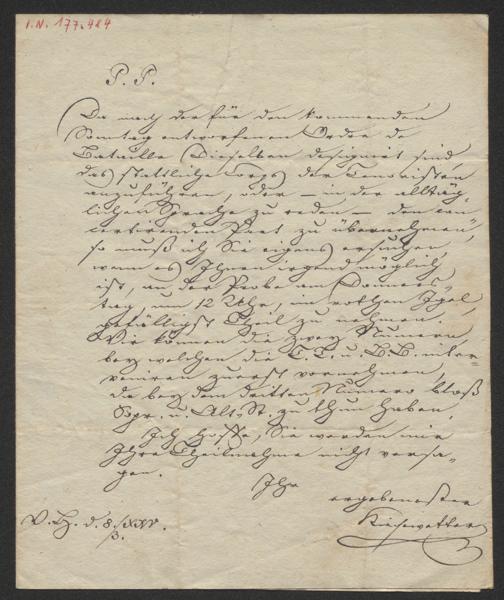 I.N. 177.484
P. P.
Da nach der für den kommenden
Sonntag entworfenen Ordre de
Bataille Dieselben designirt sind,
das stattliche Corps der Tenoristen
anzuführen, oder – in der alltäg-
lichen Sprache zu reden – den con-
certirenden Part zu übernehmen,
so muß ich Sie eigens ersuchen,
wenn es Ihnen irgend möglich
ist, an der Probe am Donners-
tag, um 12 Uhr, im rothen Igel,
gefälligst Theil zu nehmen.
Wir können die zwey Numern,
bey welchen die T.T. u. B.B. inter-
veniren zuerst vornehmen,
da bey dem dritten Numero bloß
Sopr. u. Alt. St. zu thun haben.
Ich hoffe, Sie werden mir
Ihre Theilnahme nicht versa-
gen.
Ihr
ergebenster
Kiesewetter
V. H. d. 8. XXV.
3.